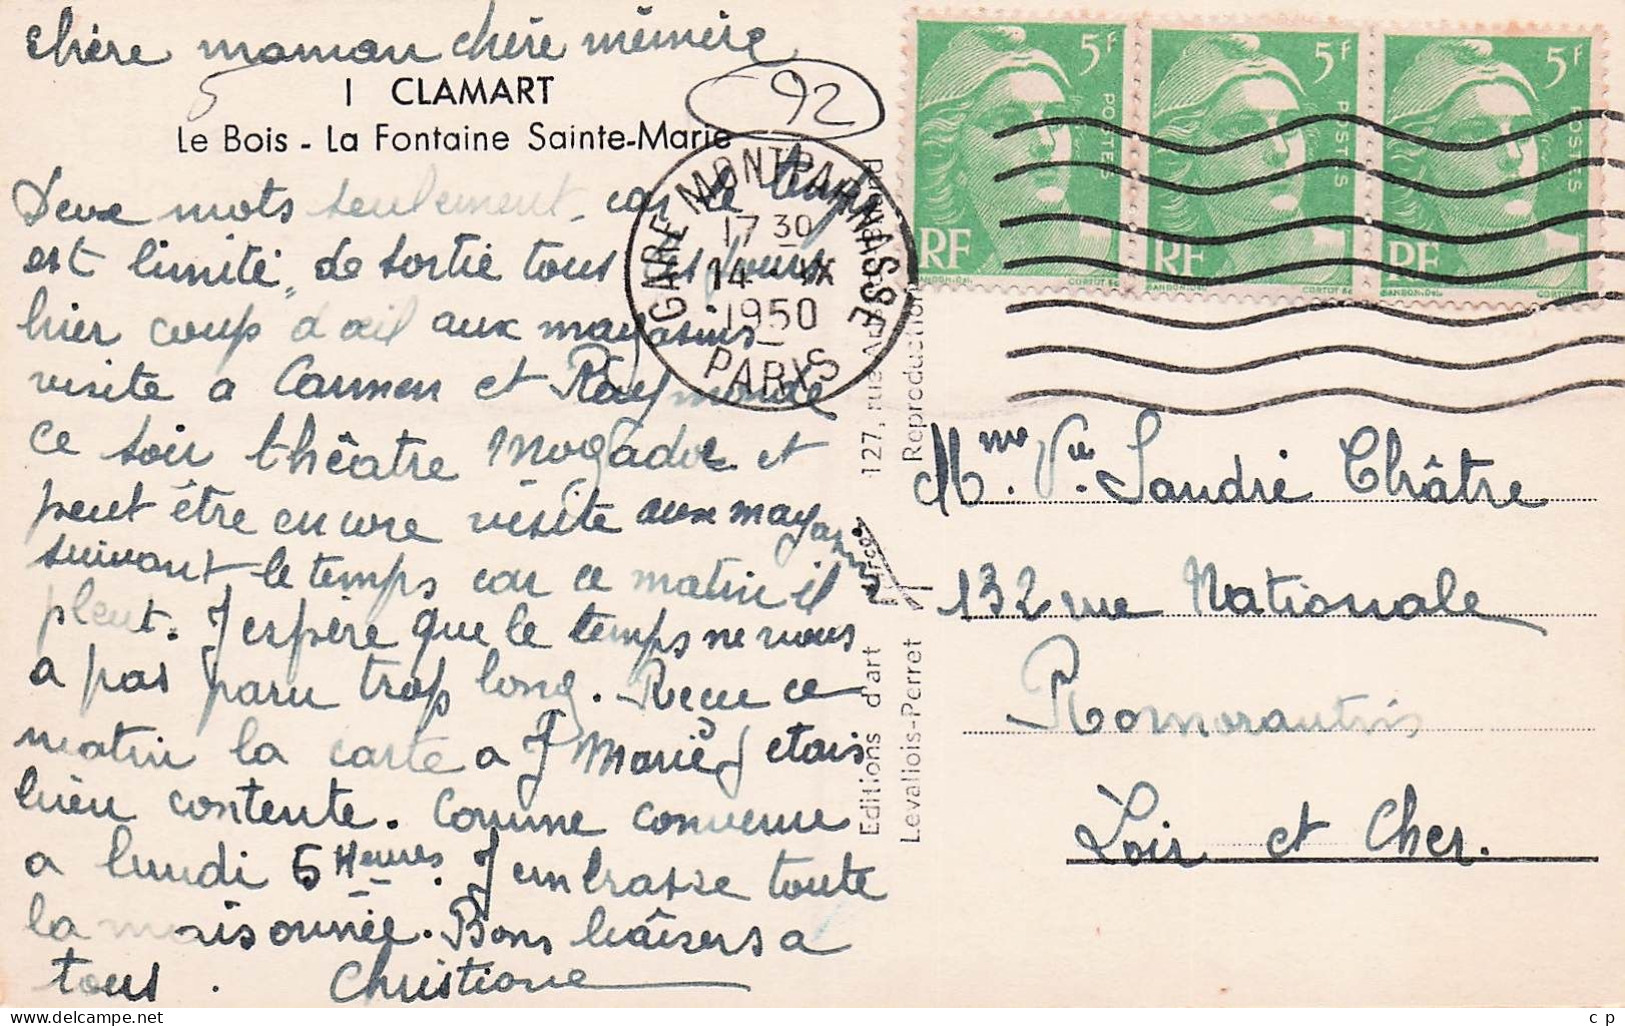 chère maman chère mémère
92
1 CLAMART
Le Bois - La Fontaine Sainte-Marie
Deux mots seulement car le temps
est limité, de sortie tous les jours
hier coup d'œil aux magasins
visite a Carmen et Raymonde
ce soir théâtre Mogador et
peut être encore visite aux magasins
suivant le temps car ce matin il
pleut. J espère que le temps ne vous
a pas paru trop long. Recu ce
matin la carte a J Marie J etais
bien contente. Comme convenue
a lundi 5 Heures. J embrasse toute
la maisonnée. Bons baisers a
tous. Christiane
GARE MONTPARNASSE
17 30
14 - IX
1950
PARIS
5F
POSTES
RF
GANDON.DEL.
CORTOT SC
5F
POSTES
RF
GANDON.DEL.
CORTOT SC
5F
POSTES
RF
GANDON.DEL.
CORTOT SC
Editions d'art
127, rue
Levallois-Perret
Reproduction
Mme Vve Sandré Châtre
132 rue Nationale
Romorantin
Loir et Cher.
c p